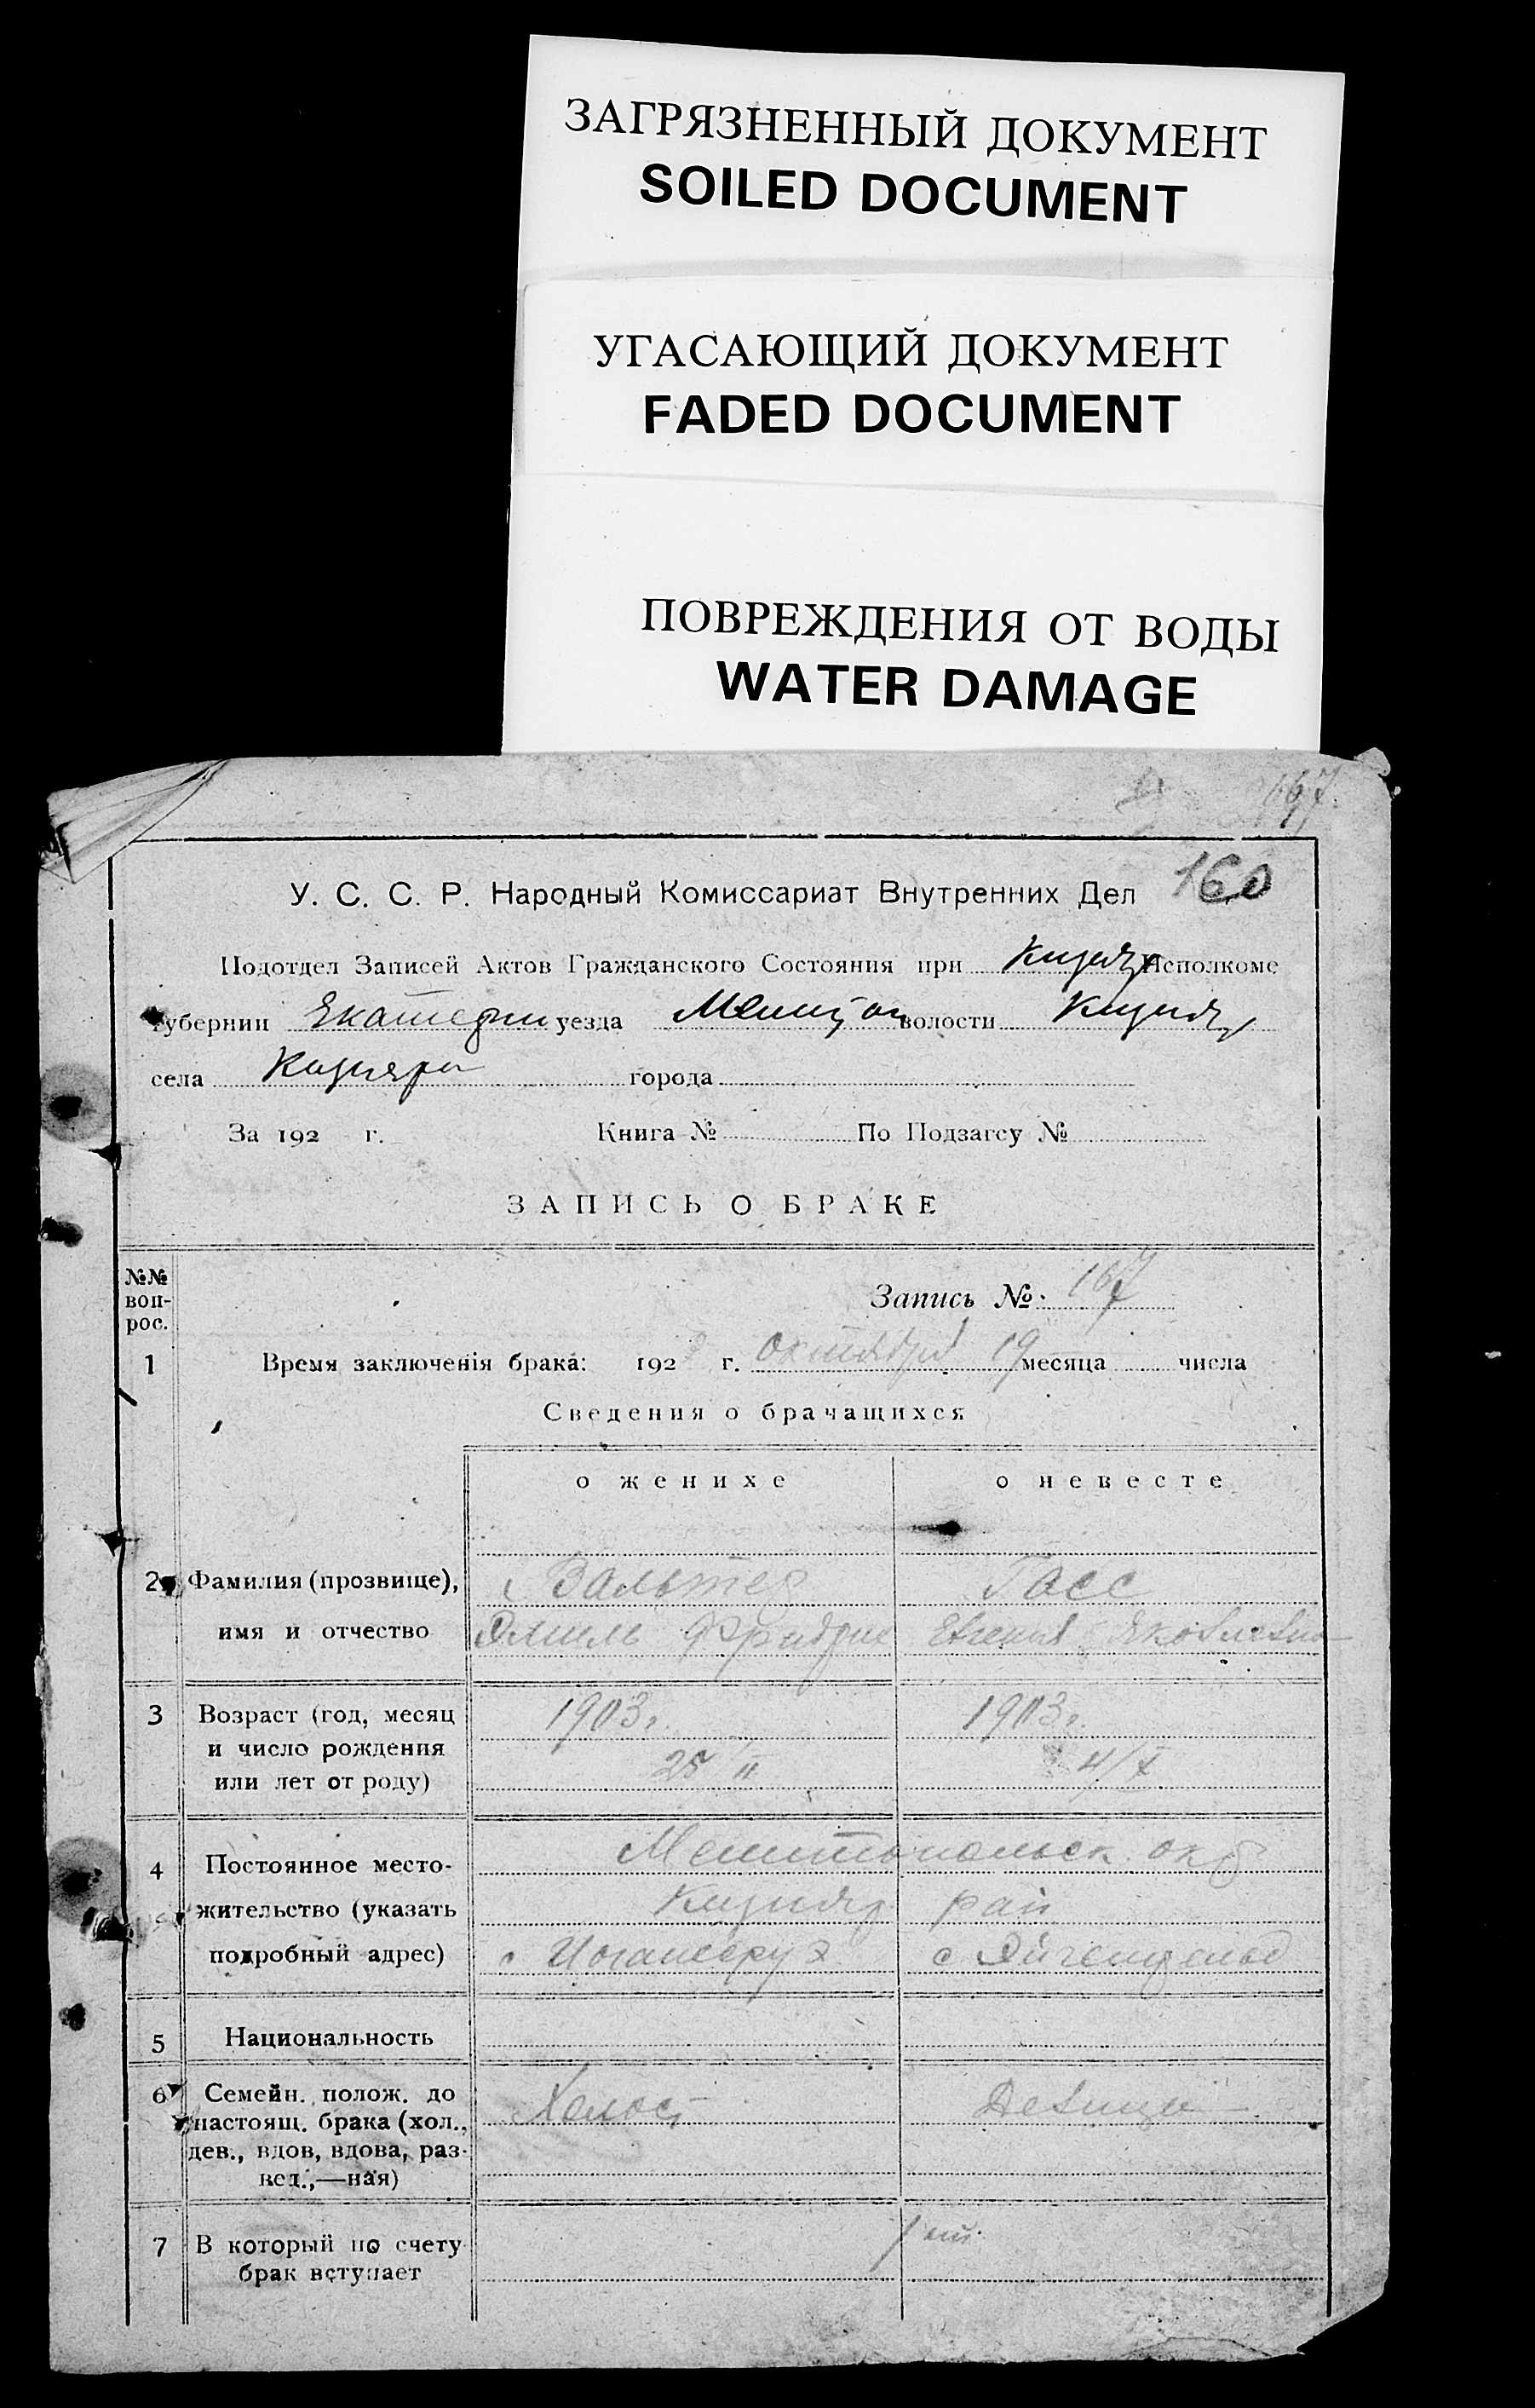 ЗАГРЯЗНЕННЫЙ ДОКУМЕНТ
SOILED DOCUMENT
УГАСАЮЩИЙ ДОКУМЕНТ
FADED DOCUMENT
ПОВРЕЖДЕНИЯ ОТ ВОДЫ
WATER DAMAGE
167
160
У. С. С. Р. Народный Комиссариат Внутренних Дел
Подотдел Записей Актов Гражданского Состояния при Кизияр Исполкоме
Губернии Екатерин уезда волости Кизияр
села Кизияры города
За 192 г. Книга № По Подзагсу №
ЗАПИСЬ О БРАКЕ
№№ воп-рос.
Запись №. 167
1 Время заключенія брака: 192 г. октября 19 месяца числа
Сведения о брачащихся
о женихе о невесте
2 Фамилия (прозвище), Вальтер Гасс
имя и отчество Эмиль Фридрих Евгения Яковлевна
3 Возраст (год, месяц 1903г. 1903г.
и число рождения
или лет от роду) 25 II 4/X
4 Постоянное место- Мелитопольск. окр
жительство (указать Кизияр рай
подробный адрес) с Иогансеру с
5 Национальность
6 Семейн. полож. до Холост Девица
настоящ. брака (хол.,
дев., вдов, вдова, раз-
вед.,—ная)
7 В который по счету 1 ый
брак вступает